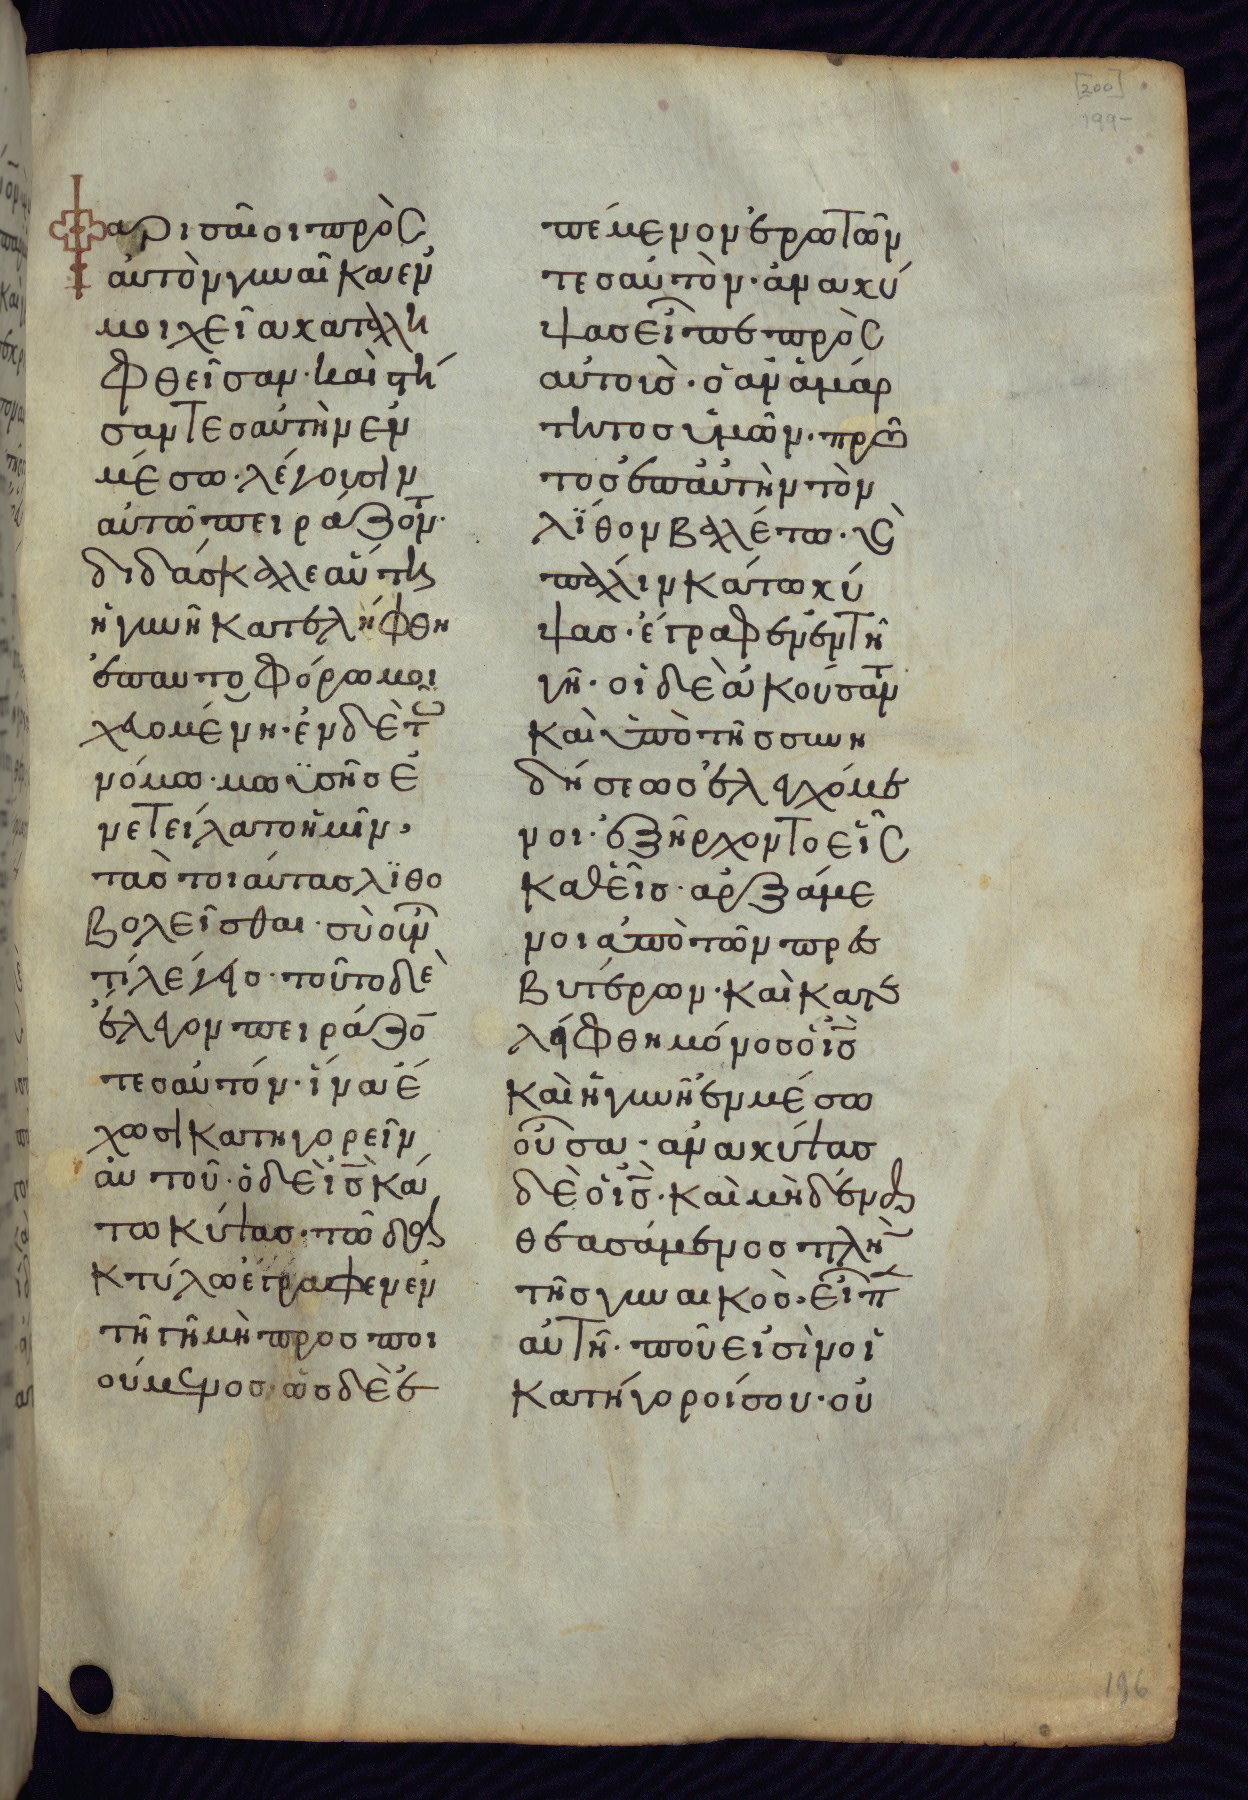 [200]
199-
Φαρισαῖοι πρὸς
αὐτὸν γυναῖκα ἐν
μοιχεία καταλη
φθεῖσαν· καὶ στή
σαντες αὐτὴν ἐν
μέσω· λέγουσιν
αὐτῶ πειράζοντ·
διδάσκαλε αὕτη
ἡ γυνὴ κατελήφθη
ἐπαυτοφόρω μοι
χευομένη· ἐν δὲ τῶ
νόμω· μωϋσῆς ἐ
νετείλατο ἡμῖν·
τὰς τοιαύτας λϊθο
βολεῖσθαι· σὺ οὖν
τί λέγεις· τοῦτο δὲ
ἔλεγον πειράζο̄
τες αὐτόν· ἵνα ἔ
χωσι κατηγορεῖν
αὐτοῦ· ὁ δὲ ις̄ κά
τω κύψας· τῶ δα
κτύλω ἔγραφεν ἐν
τῆ γῆ μὴ προσποι
ούμενος· ὡς δὲ ἐ
πέμενον ἐρωτῶν
τες αὐτὸν· ἀνακύ
ψας εἶπε πρὸς
αὐτοις· ὁ ἀναμάρ
τητος ὑμῶν· πρῶ
τος ἐπ' αὐτὴν τὸν
λϊθον βαλέτω· κ̀
πάλιν κάτω κύ
ψας· ἔγραφεν ἐν τῆ
γῆ· οἱ δὲ ἀκούσαντ
καὶ ὑπὸ τῆς συνη
δήσεως ἐλεγχόμε
νοι· ἐξήρχοντο εἷς
καθεῖς· ἀρξάμε
νοι ἀπὸ τῶν πρεσ
βυτέρων· καὶ κατε
λήφθη μόνος ὁ ις̄
καὶ ἡ γυνὴ ἐν μέσω
οὖσα· ἀνακύψας
δὲ ὁ ις̄· καὶ μηδένα
θεασάμενος πλὴν
τῆς γυναικὸς· εἶπ
αὐτῆ· ποῦ εἰσὶν οἱ
κατήγοροί σου· οὐ
196